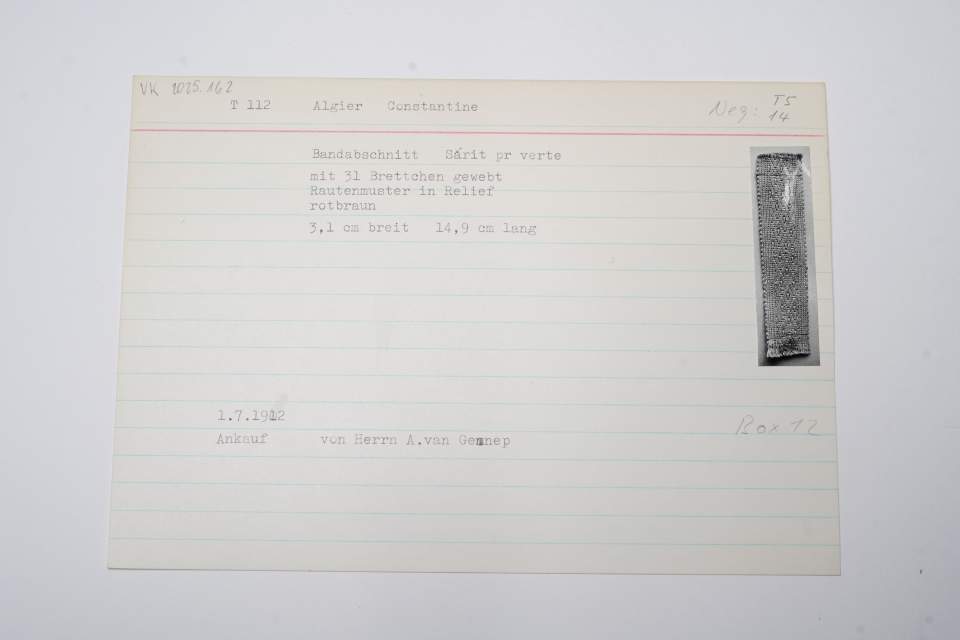 VK 2025.162
T 112 Algier Constantine
Neg: T5
14
Bandabschnitt Sárit pr verte
mit 31 Brettchen gewebt
Rautenmuster in Relief
rotbraun
3,1 cm breit 14,9 cm lang
1.7.1912
Ankauf von Herrn A.van Gennep
Box 12